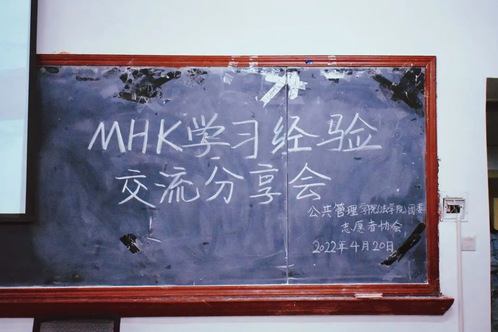 MHK学习经验
交流分享会
公共管理学院(法学院)团委
志愿者协会
2022年4月20日